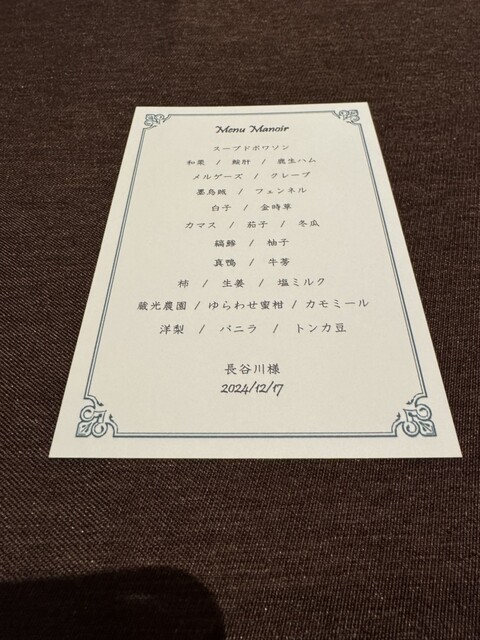 Menu Manoir
スープドポワソン
和栗 / 鮟肝 / 鹿生ハム
メルゲーズ / クレープ
墨烏賊 / フェンネル
白子 / 金時草
カマス / 茄子 / 冬瓜
縞鯵 / 柚子
真鴨 / 牛蒡
柿 / 生姜 / 塩ミルク
蔵光農園 / ゆらわせ蜜柑 / カモミール
洋梨 / バニラ / トンカ豆
長谷川様
2024/12/17